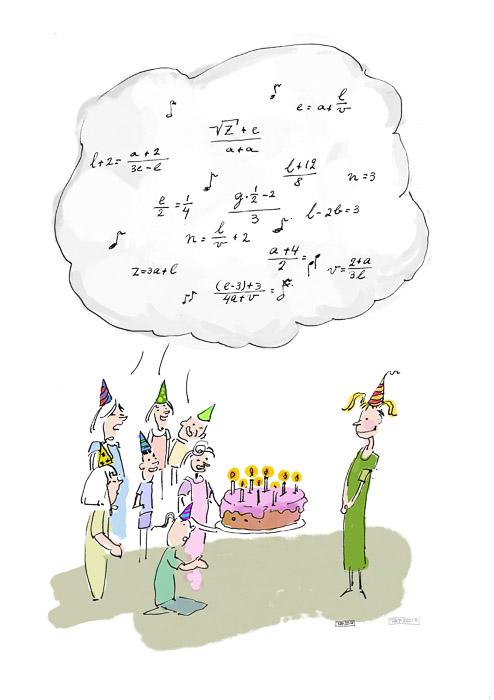 e = a+ l/v
(√z + e)/(a+a)
l+2 = (a+2)/(3e-l)
(l+12)/8
n=3
e/2 = 1/4
(g·1/2-2)/3
l-2b=3
n = l/v + 2
(a+4)/2 =
v = (2+a)/(3l)
z=3a+l
((e-3)+3)/(4a+v) =